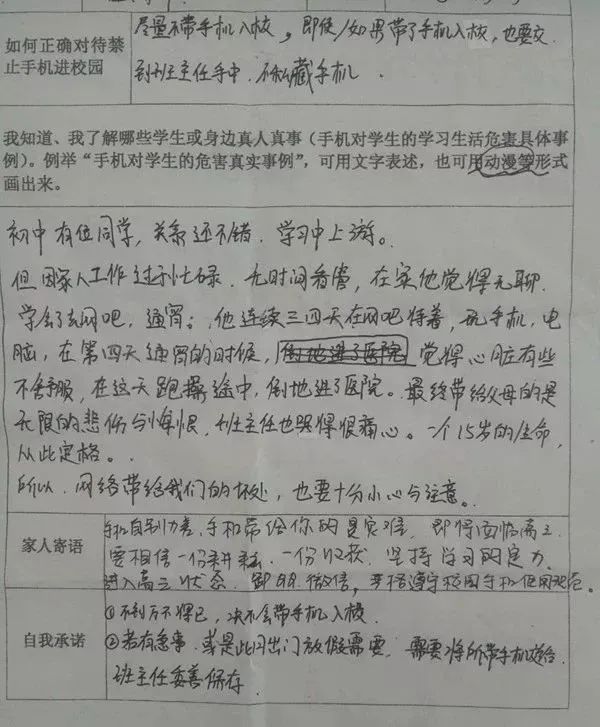 如何正确对待禁
止手机进校园
尽量不带手机入校，即使/如果带了手机入校，也要交
到班主任手中．不私藏手机．
我知道、我了解哪些学生或身边真人真事（手机对学生的学习生活危害具体事
例）。例举“手机对学生的危害真实事例”，可用文字表述，也可用动漫等形式
画出来。
初中有位同学，关系还不错．学习中上游。
但因家人工作过于忙碌．无时间看管，在家他觉得无聊．
学会了去网吧，通宵；他连续三四天在网吧待着，玩手机，电
脑，在第四天通宵的时候，倒地进了医院 觉得心脏有些
不舒服，在这天跑操途中，倒地进了医院。最终带给父母的是
无限的悲伤与悔恨．班主任也哭得很痛心。一个15岁的生命，
从此定格。
所以．网络带给我们的坏处，也要十分小心与注意。
家人寄语
自制力差，手机带给你的是灾难．即将面临高三
要相信一份耕耘．一份收获．坚持学习的定力．
进入高三状态．卸QQ．微信，严格遵守校园手机使用规范。
自我承诺
①不到万不得已，决不会带手机入校．
②若有急事．或是出门放假需要．需要将所带手机送给
班主任妥善保存．